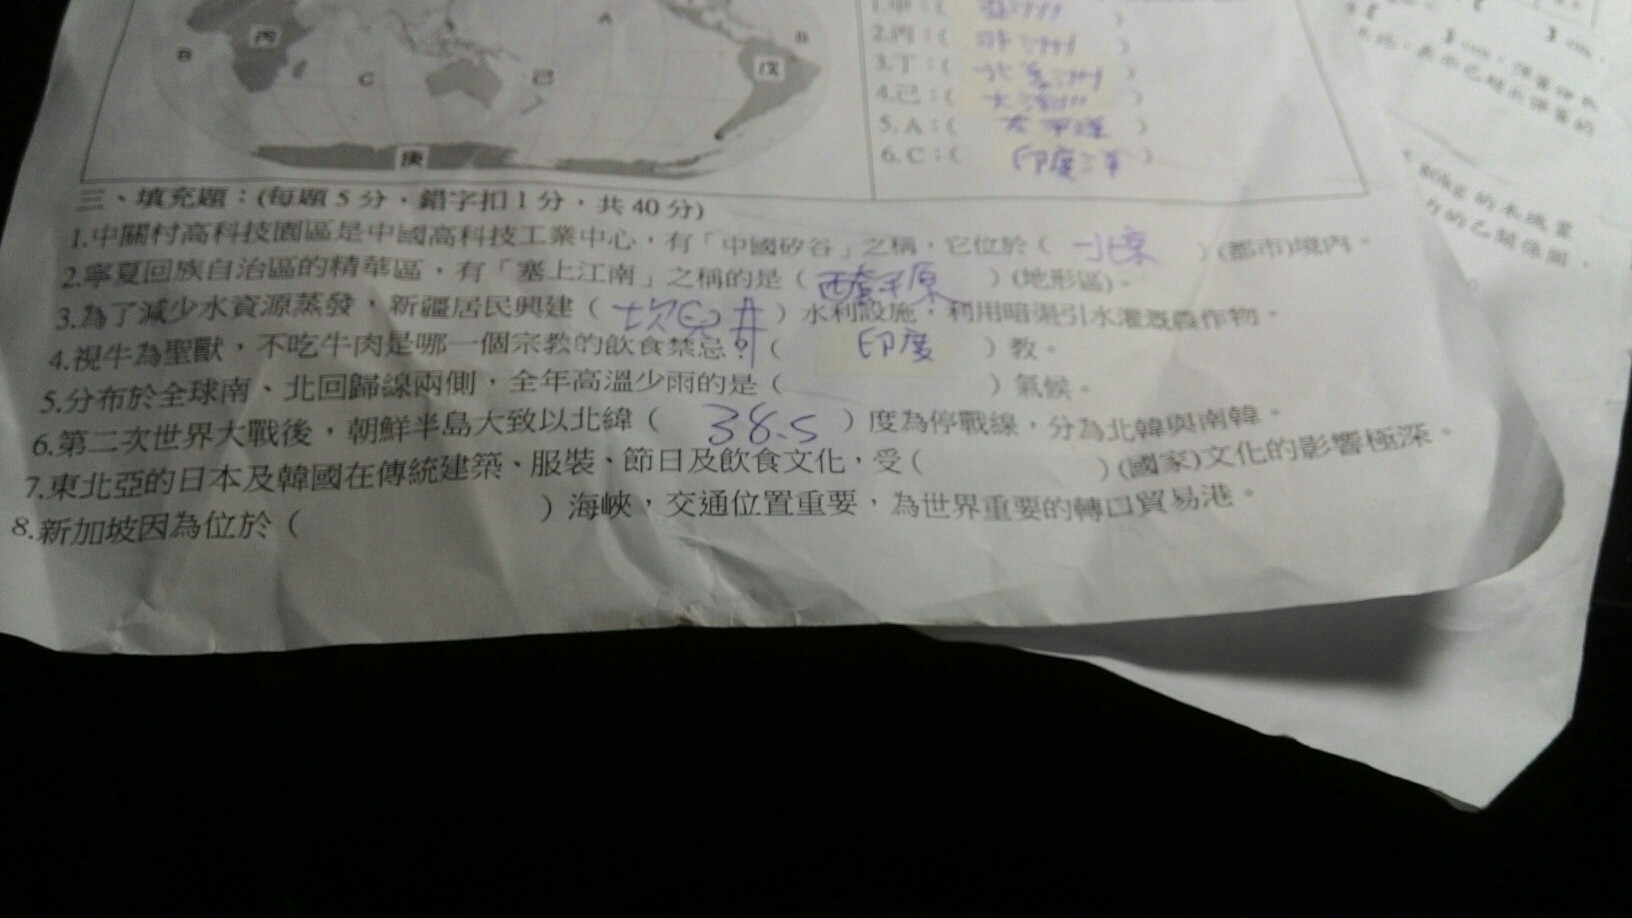 丙
A
B
B
C
己
戊
庚
2.丙：( 非洲 )
3.丁：( 北美洲 )
4.己：( 大洋洲 )
5. A：( 太平洋 )
6. C：( 印度洋 )
三、填充題：(每題 5 分，錯字扣 1 分，共 40 分)
1.中關村高科技園區是中國高科技工業中心，有「中國矽谷」之稱，它位於( 北京 )(都市)境內。
2.寧夏回族自治區的精華區，有「塞上江南」之稱的是( 西套平原 )(地形區)。
3.為了減少水資源蒸發，新疆居民興建( 坎兒井 )水利設施，利用暗渠引水灌溉農作物。
4.視牛為聖獸，不吃牛肉是哪一個宗教的飲食禁忌？( 印度 )教。
5.分布於全球南、北回歸線兩側，全年高溫少雨的是( )氣候。
6.第二次世界大戰後，朝鮮半島大致以北緯( 38.5 )度為停戰線，分為北韓與南韓。
7.東北亞的日本及韓國在傳統建築、服裝、節日及飲食文化，受( )(國家)文化的影響極深。
8.新加坡因為位於( )海峽，交通位置重要，為世界重要的轉口貿易港。